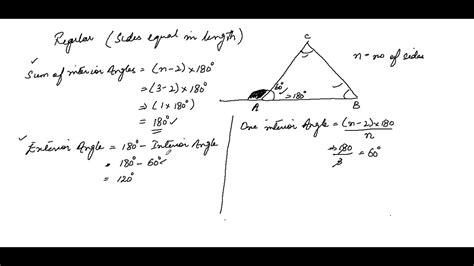 Regular (Sides equal in length)
✓ Sum of interior Angles = (n-2) × 180°
= (3-2) × 180°
= (1 × 180°)
= 180° ✓
✓ Exterior Angle = 180° - Interior Angle
= 180° - 60° ✓
= 120°
C
n = no of sides
60°
= 180°
A
B
One interior Angle = (n-2) × 180
n
⇒ 180 = 60°
3